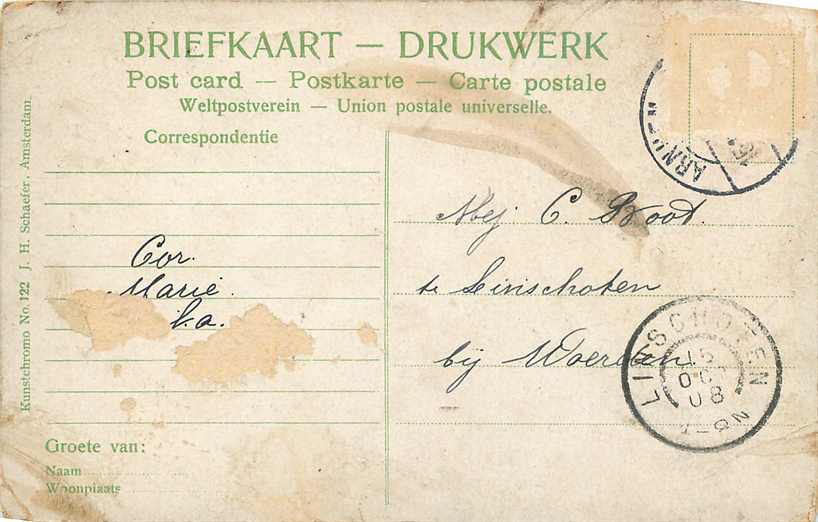 BRIEFKAART — DRUKWERK
Post card — Postkarte — Carte postale
Weltpostverein — Union postale universelle.
Correspondentie
Cor.
Marie.
Mej C. Boot.
te Linschoten
bij Woerden
LINSCHOTEN
15
OCT
08
Groete van:
Naam
Woonplaats
Kunstchromo No. 122 J. H. Schaefer, Amsterdam.